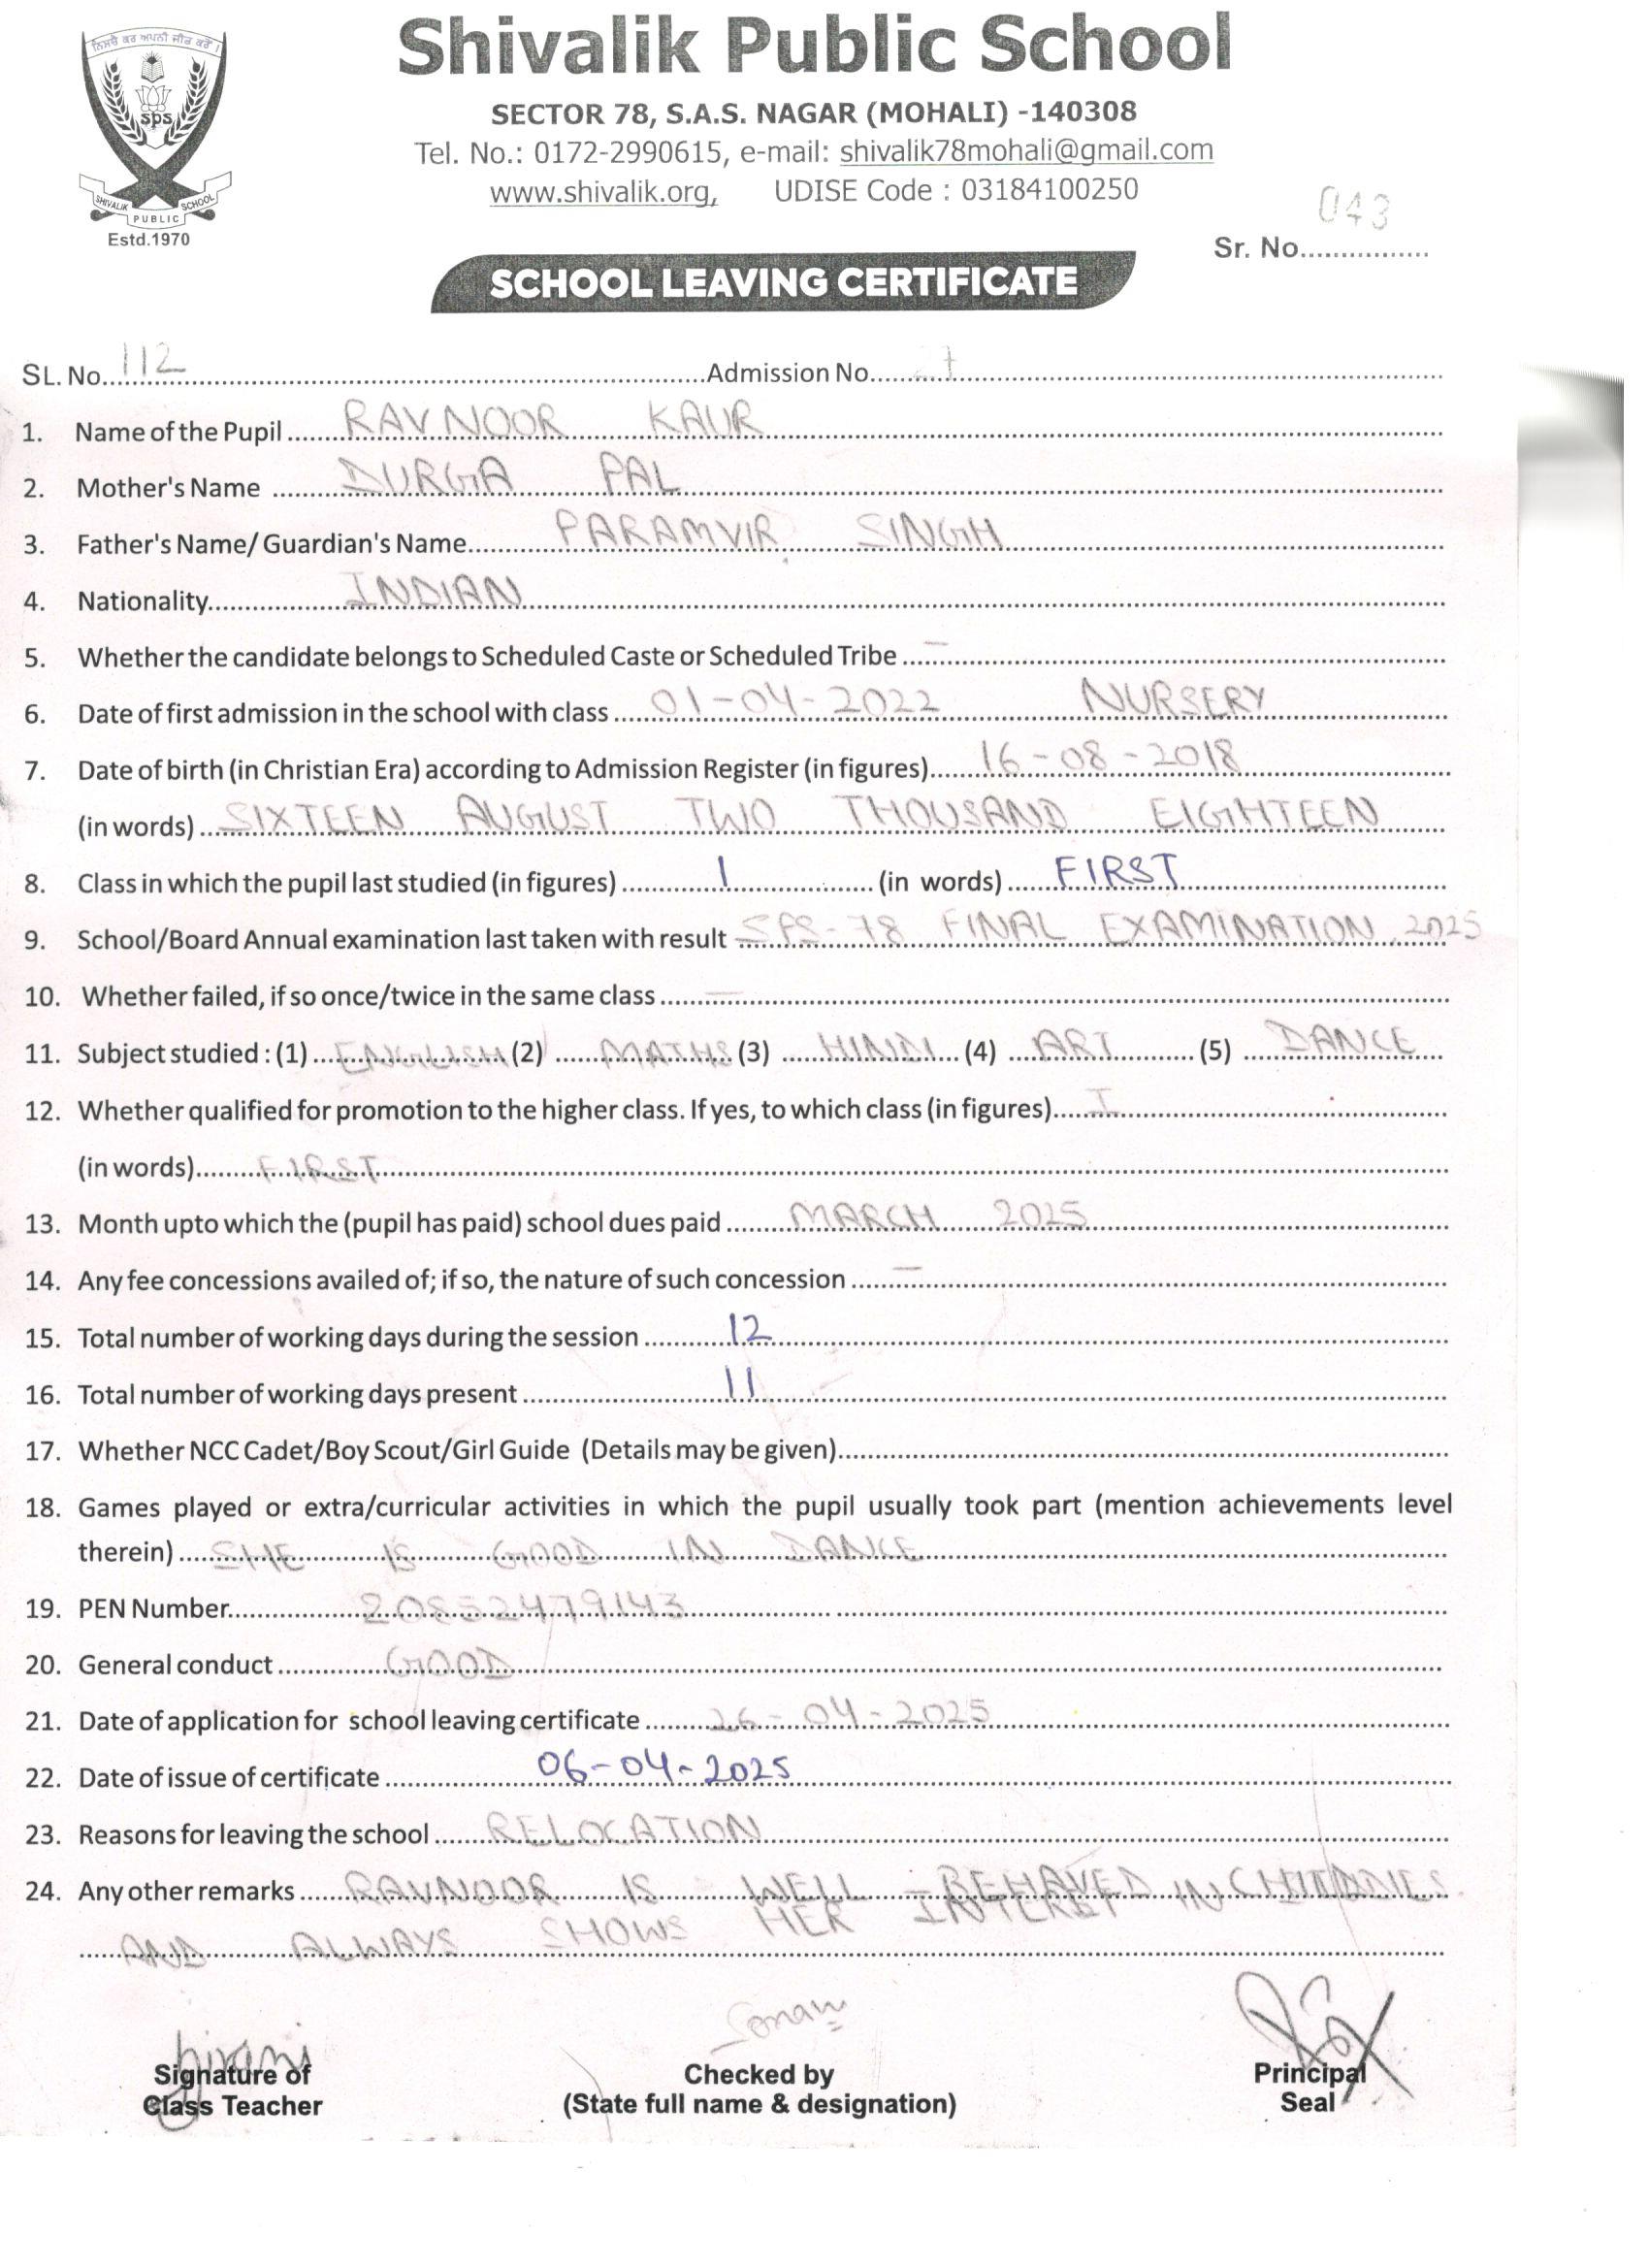 ਨਿਸਚੈ ਕਰ ਅਪਨੀ ਜੀਤ ਕਰੋਂ ।
sps
SHIVALIK PUBLIC SCHOOL
Estd.1970
Shivalik Public School
SECTOR 78, S.A.S. NAGAR (MOHALI) -140308
Tel. No.: 0172-2990615, e-mail: shivalik78mohali@gmail.com
www.shivalik.org, UDISE Code : 03184100250
Sr. No. 043
SCHOOL LEAVING CERTIFICATE
SL. No. 112 Admission No.
1. Name of the Pupil RAVNOOR KAUR
2. Mother's Name DURGA PAL
3. Father's Name/ Guardian's Name PARAMVIR SINGH
4. Nationality INDIAN
5. Whether the candidate belongs to Scheduled Caste or Scheduled Tribe –
6. Date of first admission in the school with class 01-04-2022 NURSERY
7. Date of birth (in Christian Era) according to Admission Register (in figures) 16-08-2018
(in words) SIXTEEN AUGUST TWO THOUSAND EIGHTEEN
8. Class in which the pupil last studied (in figures) 1 (in words) FIRST
9. School/Board Annual examination last taken with result SPS-78 FINAL EXAMINATION 2025
10. Whether failed, if so once/twice in the same class –
11. Subject studied : (1) ENGLISH (2) MATHS (3) HINDI (4) ART (5) DANCE
12. Whether qualified for promotion to the higher class. If yes, to which class (in figures) I
(in words) FIRST
13. Month upto which the (pupil has paid) school dues paid MARCH 2025
14. Any fee concessions availed of; if so, the nature of such concession –
15. Total number of working days during the session 12
16. Total number of working days present 11
17. Whether NCC Cadet/Boy Scout/Girl Guide (Details may be given)
18. Games played or extra/curricular activities in which the pupil usually took part (mention achievements level
therein) SHE IS GOOD IN DANCE
19. PEN Number 20852479143
20. General conduct GOOD
21. Date of application for school leaving certificate 26-04-2025
22. Date of issue of certificate 06-04-2025
23. Reasons for leaving the school RELOCATION
24. Any other remarks RAVNOOR IS WELL - BEHAVED
AND ALWAYS SHOWS HER IN
Sonam
Signature of
Class Teacher
Checked by
(State full name & designation)
Principal
Seal